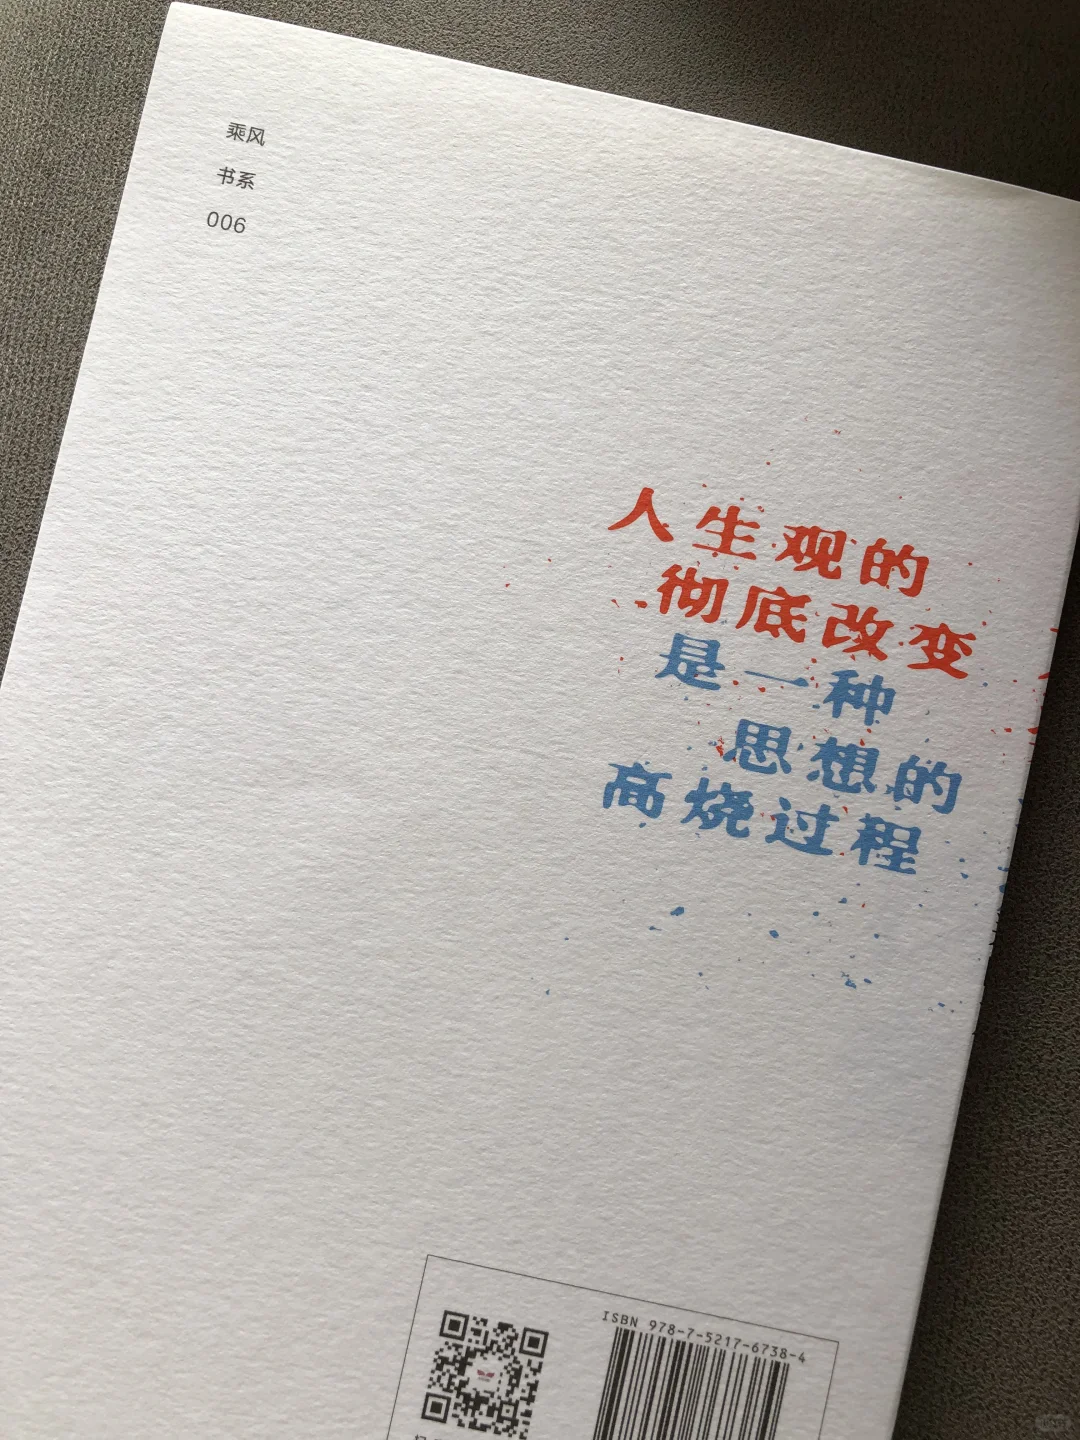 乘风
书系
006
人生观的
彻底改变
是一种
思想的
高烧过程
ISBN 978-7-5217-6738-4